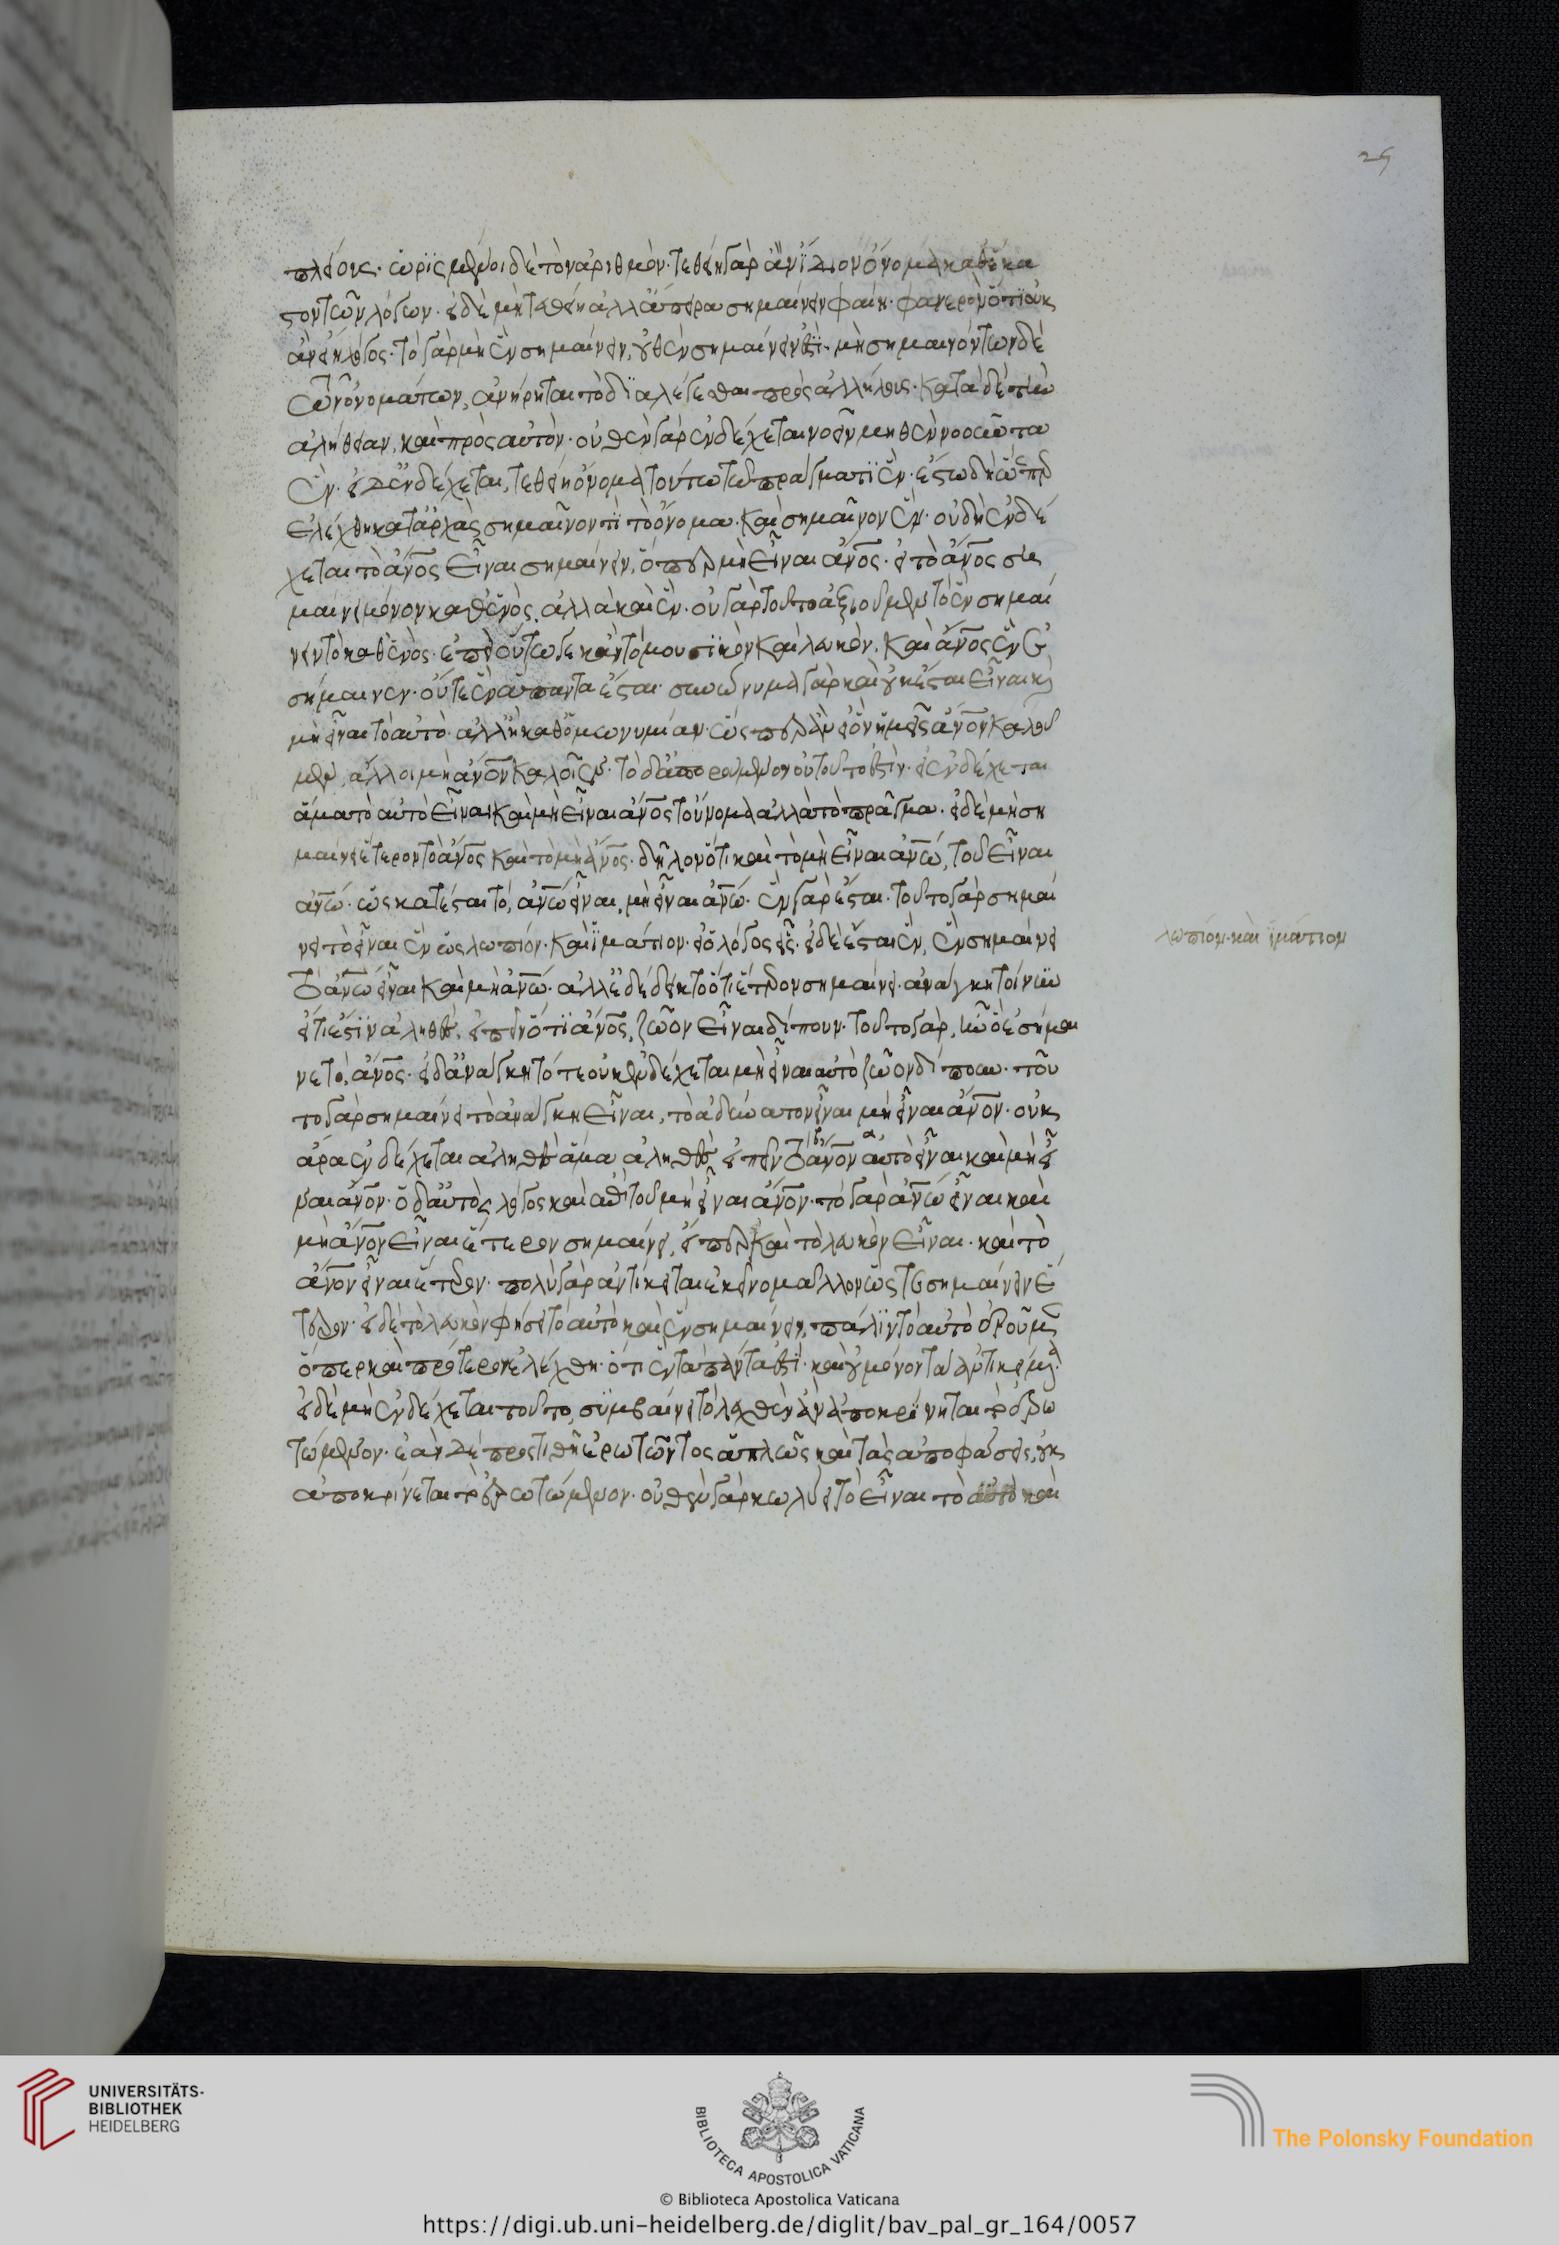 25
πλείους· ὡρισμένοι δὲ τὸν ἀριθμόν· τεθείη γὰρ ἂν ἴδιον ὄνομα καθ' ἕκα
στον τῶν λόγων· εἰ δὲ μὴ τεθείη ἀλλ' ἄπειρα σημαίνειν φαίη· φανερὸν ὅτι οὐκ
ἂν εἴη λόγος· τὸ γὰρ μὴ ἓν σημαίνειν, οὐθὲν σημαίνειν ἐστί· μὴ σημαινόντων δὲ
τῶν ὀνομάτων, ἀνήρηται τὸ διαλέγεσθαι πρὸς ἀλλήλους· κατὰ δὲ τὴν
ἀλήθειαν, καὶ πρὸς αὑτόν· οὐθὲν γὰρ ἐνδέχεται νοεῖν μηθὲν νοοῦντα
ἕν· εἰ δ' ἐνδέχεται, τεθείη ὄνομα τούτῳ τῷ πράγματι ἕν· ἔστω δὴ ὥσπερ
ἐλέχθη κατ' ἀρχὰς σημαῖνον τι τὸ ὄνομα· καὶ σημαῖνον ἕν· οὐ δὴ ἐνδέ
χεται τὸ ἀνος εἶναι σημαίνειν, ὅπερ μὴ εἶναι ἀνος· εἰ τὸ ἀνος ση
μαίνει μόνον καθ' ἑνός, ἀλλὰ καὶ ἕν· οὐ γὰρ τοῦτο ἀξιοῦμεν τὸ ἓν σημαί
νειν τὸ καθ' ἑνός· ἐπεὶ οὕτω γε κἂν τὸ μουσικὸν καὶ λευκόν, καὶ ἄνος ἓν ἐ
σήμαινεν· ὥστε ἓν ἅπαντα ἔσται· συνώνυμα γάρ· καὶ οὐκ ἔσται εἶναι καὶ
μὴ εἶναι τὸ αὐτό· ἀλλ' ἢ καθ' ὁμωνυμίαν· ὥσπερ ἂν εἰ ὃν ἡμεῖς ἄνον καλοῦ
μεν, ἄλλοι μὴ ἄνον καλοῖεν· τὸ δ' ἀπορούμενον οὐ τοῦτό ἐστιν· εἰ ἐνδέχεται
ἅμα τὸ αὐτὸ εἶναι καὶ μὴ εἶναι ἄνος τοὔνομα ἀλλὰ τὸ πρᾶγμα· εἰ δὲ μὴ ση
μαίνει ἕτερον τὸ ἄνος καὶ τὸ μὴ ἄνος· δῆλον ὅτι καὶ τὸ μὴ εἶναι ἀνω, τοῦ εἶναι
ἀνω· ὥστ' ἔσται τό, ἀνω εἶναι, μὴ εἶναι ἀνω· ἓν γὰρ ἔσται· τοῦτο γὰρ σημαί
νει τὸ εἶναι ἓν ὡς λωπιόν· καὶ ἱμάτιον· εἰ ὁ λόγος εἷς· εἰ δὲ ἔσται ἕν, ἓν σημαίνει
τὸ ἀνω εἶναι καὶ μὴ ἀνω· ἀλλ' ἐδέδεικτο ὅτι ἕτερον σημαίνει· ἀνάγκη τοίνυν
εἴ τι ἐστὶν ἀληθὲς εἰπεῖν ὅτι ἄνος, ζῷον εἶναι δίπουν· τοῦτο γὰρ ἦν ὃ ἐσήμαι
νε τό, ἄνος· εἰ δ' ἀνάγκη τοῦτο οὐκ ἐνδέχεται μὴ εἶναι αὐτὸ ζῷον δίπουν· τοῦ
το γὰρ σημαίνει τὸ ἀνάγκη εἶναι, τὸ ἀδύνατον εἶναι μὴ εἶναι ἄνον· οὐκ
ἄρα ἐνδέχεται ἀληθὲς ἅμα ἀληθὲς εἰπεῖν τὸ ἄνον αὐτὸ εἶναι καὶ μὴ εἶ
ναι ἄνον· ὁ δ' αὐτὸς λόγος καὶ ἐπὶ τοῦ μὴ εἶναι ἄνον· τὸ γὰρ ἀνω εἶναι καὶ
μὴ ἄνον εἶναι ἕτερον σημαίνει, εἴπερ καὶ τὸ λευκὸν εἶναι· καὶ τὸ
ἄνον εἶναι ἕτερον· πολὺ γὰρ ἀντίκειται ἐκεῖνο μᾶλλον ὥστε σημαίνειν ἕ
τερον· εἰ δὲ τὸ λευκὸν φήσει τὸ αὐτὸ καὶ ἓν σημαίνειν, πάλιν τὸ αὐτὸ ἐροῦμεν
ὅπερ καὶ πρότερον ἐλέχθη· ὅτι ἓν τὰ πάντα ἐστί· καὶ οὐ μόνον τὰ ἀντικείμενα·
εἰ δὲ μὴ ἐνδέχεται τοῦτο, συμβαίνει τὸ λεχθὲν ἂν ἀποκρίνηται τὸ ἐρω
τώμενον· ἐὰν δὲ προστιθῇ ἐρωτῶντος ἁπλῶς καὶ τὰς ἀποφάσεις, οὐκ
ἀποκρίνεται τὸ ἐρωτώμενον· οὐθὲν γὰρ κωλύει τὸ εἶναι τὸ αὐτὸ καὶ
λωπιόν· καὶ ἱμάτιον
UNIVERSITÄTS-
BIBLIOTHEK
HEIDELBERG
BIBLIOTECA APOSTOLICA VATICANA
The Polonsky Foundation
© Biblioteca Apostolica Vaticana
https://digi.ub.uni-heidelberg.de/diglit/bav_pal_gr_164/0057